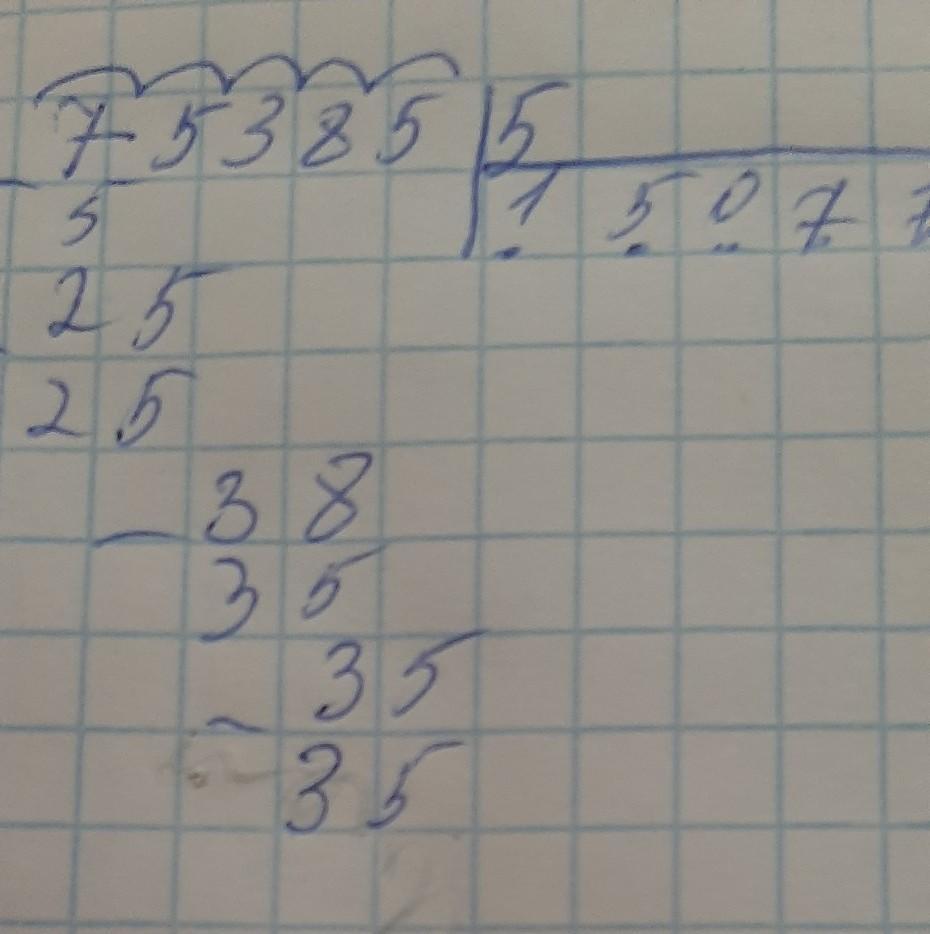 75385 | 5
- 5 15077
25
- 25
- 38
35
- 35
35